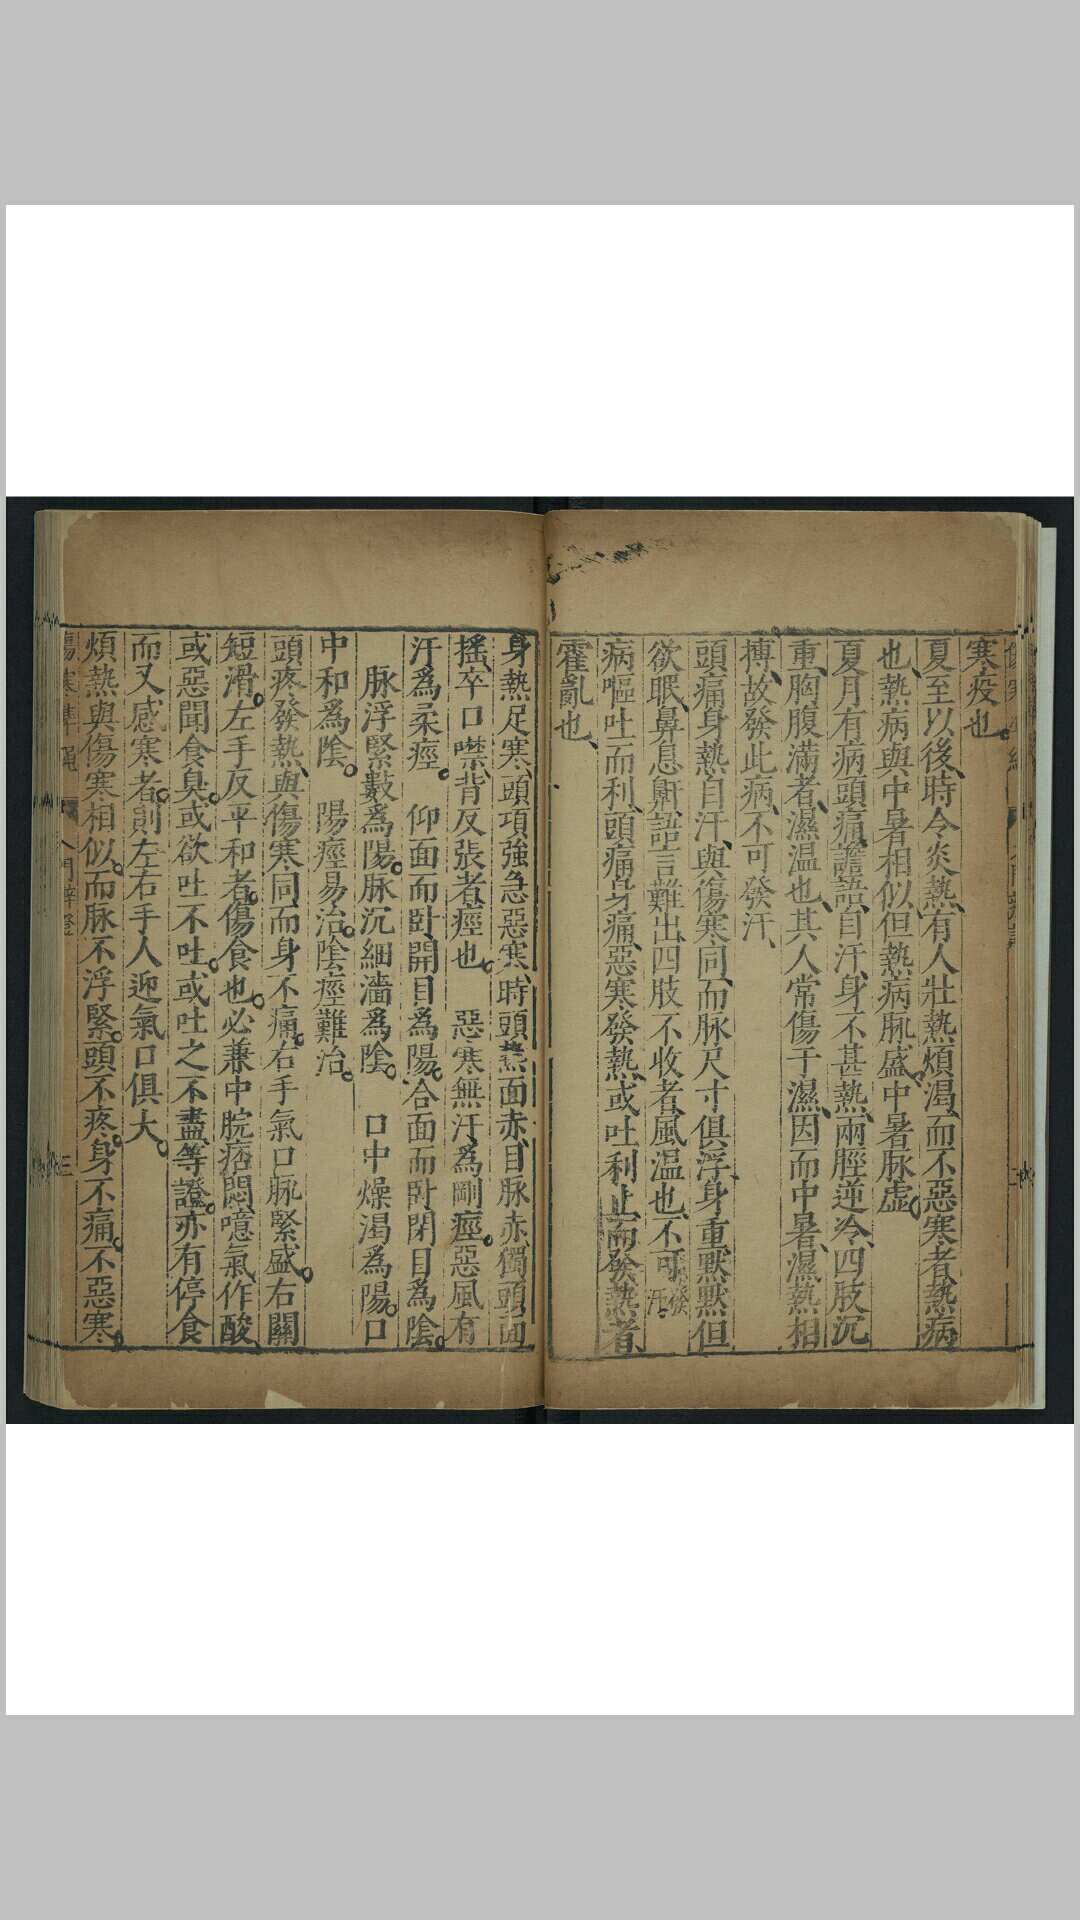 寒疫也。
夏至以後、時令炎熱、有人壯熱煩渴、而不惡寒者、熱病
也、熱病與中暑相似、但熱病脉盛、中暑脉虛。
夏月有病、頭痛、譫語、自汗、身不甚熱、兩脛逆冷、四肢沉
重、胸腹滿者、濕温也、其人常傷于濕、因而中暑、濕熱相
搏、故發此病、不可發汗、
頭痛身熱自汗、與傷寒同、而脉尺寸俱浮、身重默默但
欲眠、鼻息鼾、語言難出、四肢不收者、風温也、不可發汗。
病嘔吐而利、頭痛身痛、惡寒發熱、或吐利止而發熱者、
霍亂也、
身熱足寒、頭項強急、惡寒、時頭熱面赤、目脉赤、獨頭面
搖、卒口噤、背反張者、痙也。　惡寒無汗、爲剛痙。惡風有
汗爲柔痙。　仰面而卧、開目爲陽。合面而卧閉目爲陰。
脉浮緊數爲陽。脉沉細濇爲陰。　口中燥渴爲陽。口
中和爲陰。　陽痙易治。陰痙難治。
頭疼發熱、與傷寒同、而身不痛。右手氣口脉緊盛。右關
短滑。左手反平和者。傷食也。必兼中脘痞悶、噫氣作酸、
或惡聞食臭。或欲吐不吐。或吐之不盡等證。亦有停食
而又感寒者。則左右手人迎氣口俱大。
煩熱與傷寒相似。而脉不浮緊。頭不疼。身不痛。不惡寒。
傷寒準繩
入門辨證
三